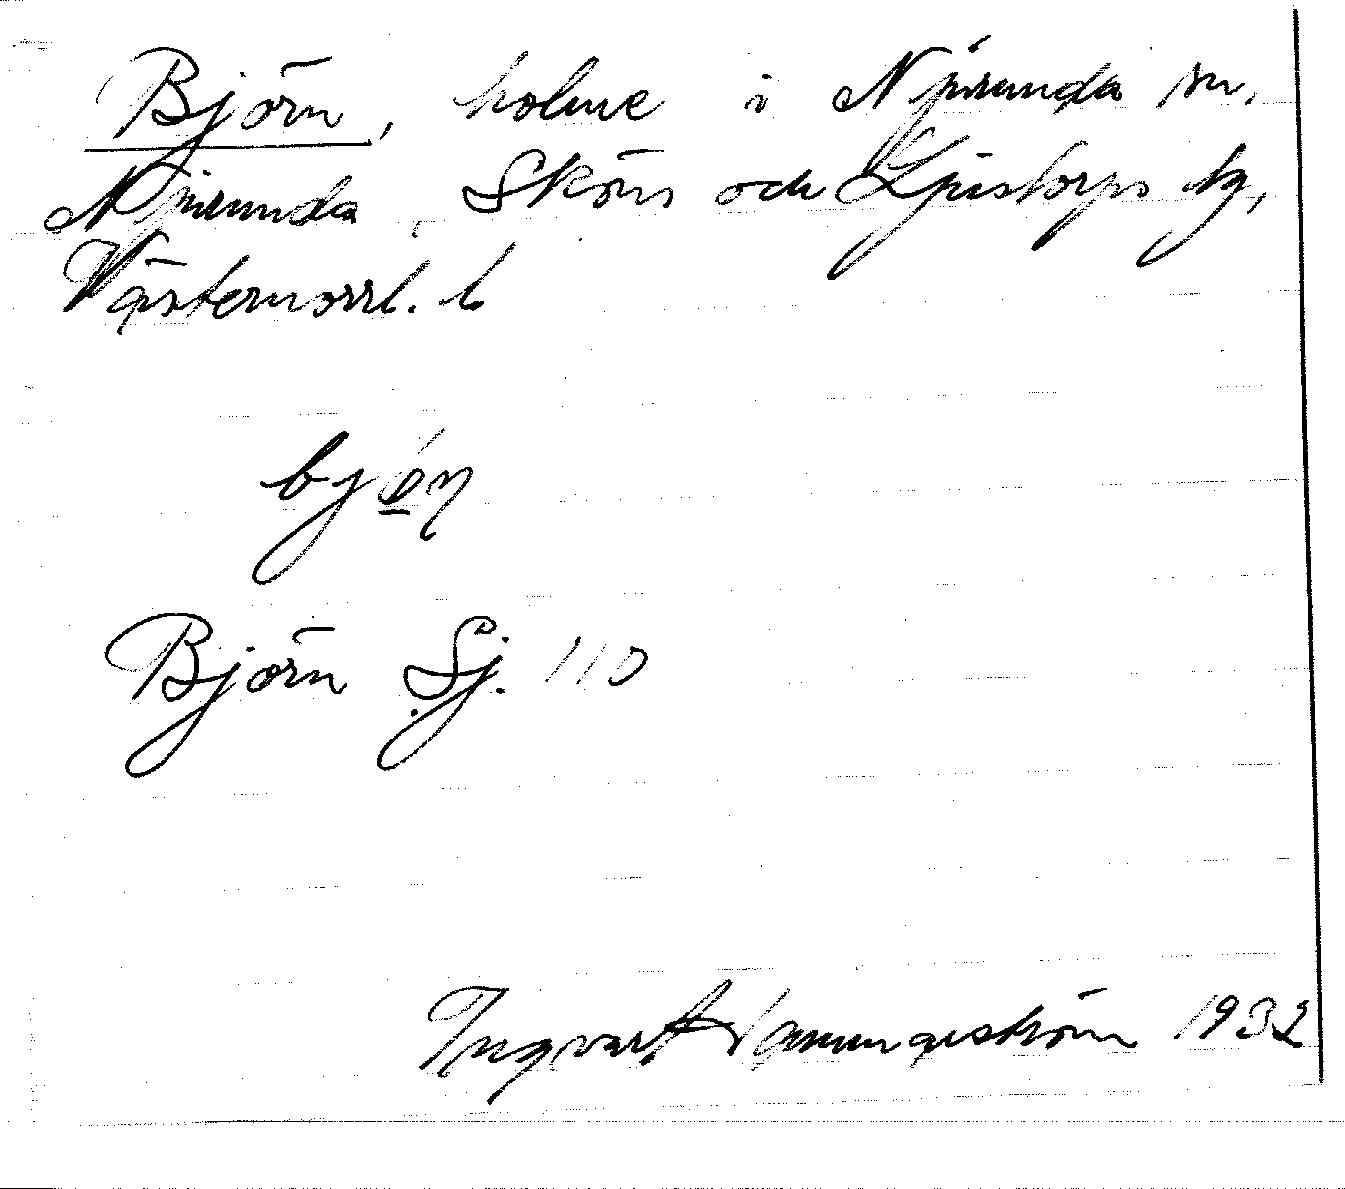 Björn, holme i Njurunda sn,
Njurunda, Sköns och Ljustorps tg,
Västernorrl. l
Björn Sj. 110
Ingvar 1932